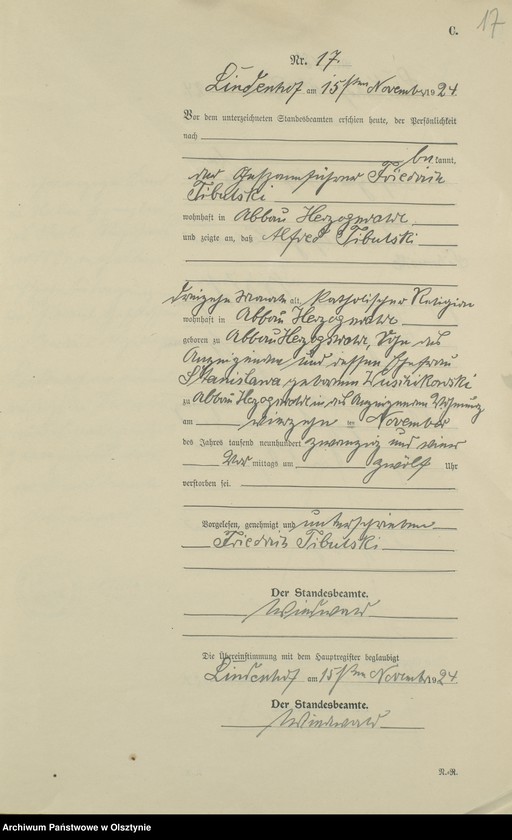 17
C.
Nr. 17.
Lindenhof am 15ten November 1924.
Vor dem unterzeichneten Standesbeamten erschien heute, der Persönlichkeit
nach
bekannt,
der Friedrich
Tibulski
wohnhaft in Abbau Herzogswalde
und zeigte an, daß Alfred Tibulski
dreizehn Monate alt, katholischer Religion
wohnhaft in Abbau Herzogswalde
geboren zu Abbau Herzogswalde, Sohn des
Anzeigenden und dessen Ehefrau
Stanislawa geborenen
zu Abbau Herzogswalde in des Anzeigenden Wohnung
am vierzehn ten November
des Jahres tausend neunhundert zwanzig und vier
Vor mittags um zwölf Uhr
verstorben sei.
Vorgelesen, genehmigt und unterschrieben
Friedrich Tibulski
Der Standesbeamte.
Die Übereinstimmung mit dem Hauptregister beglaubigt
Lindenhof am 15ten November 1924.
Der Standesbeamte.
N.-R.
Archiwum Państwowe w Olsztynie